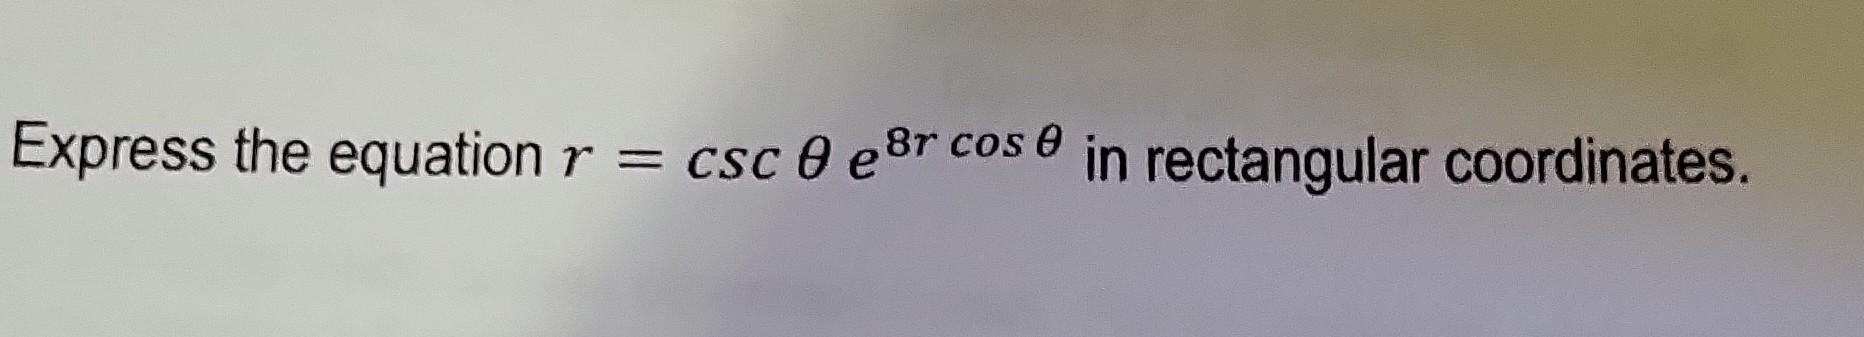 Express the equation r = csc θ e^{8r cos θ} in rectangular coordinates.